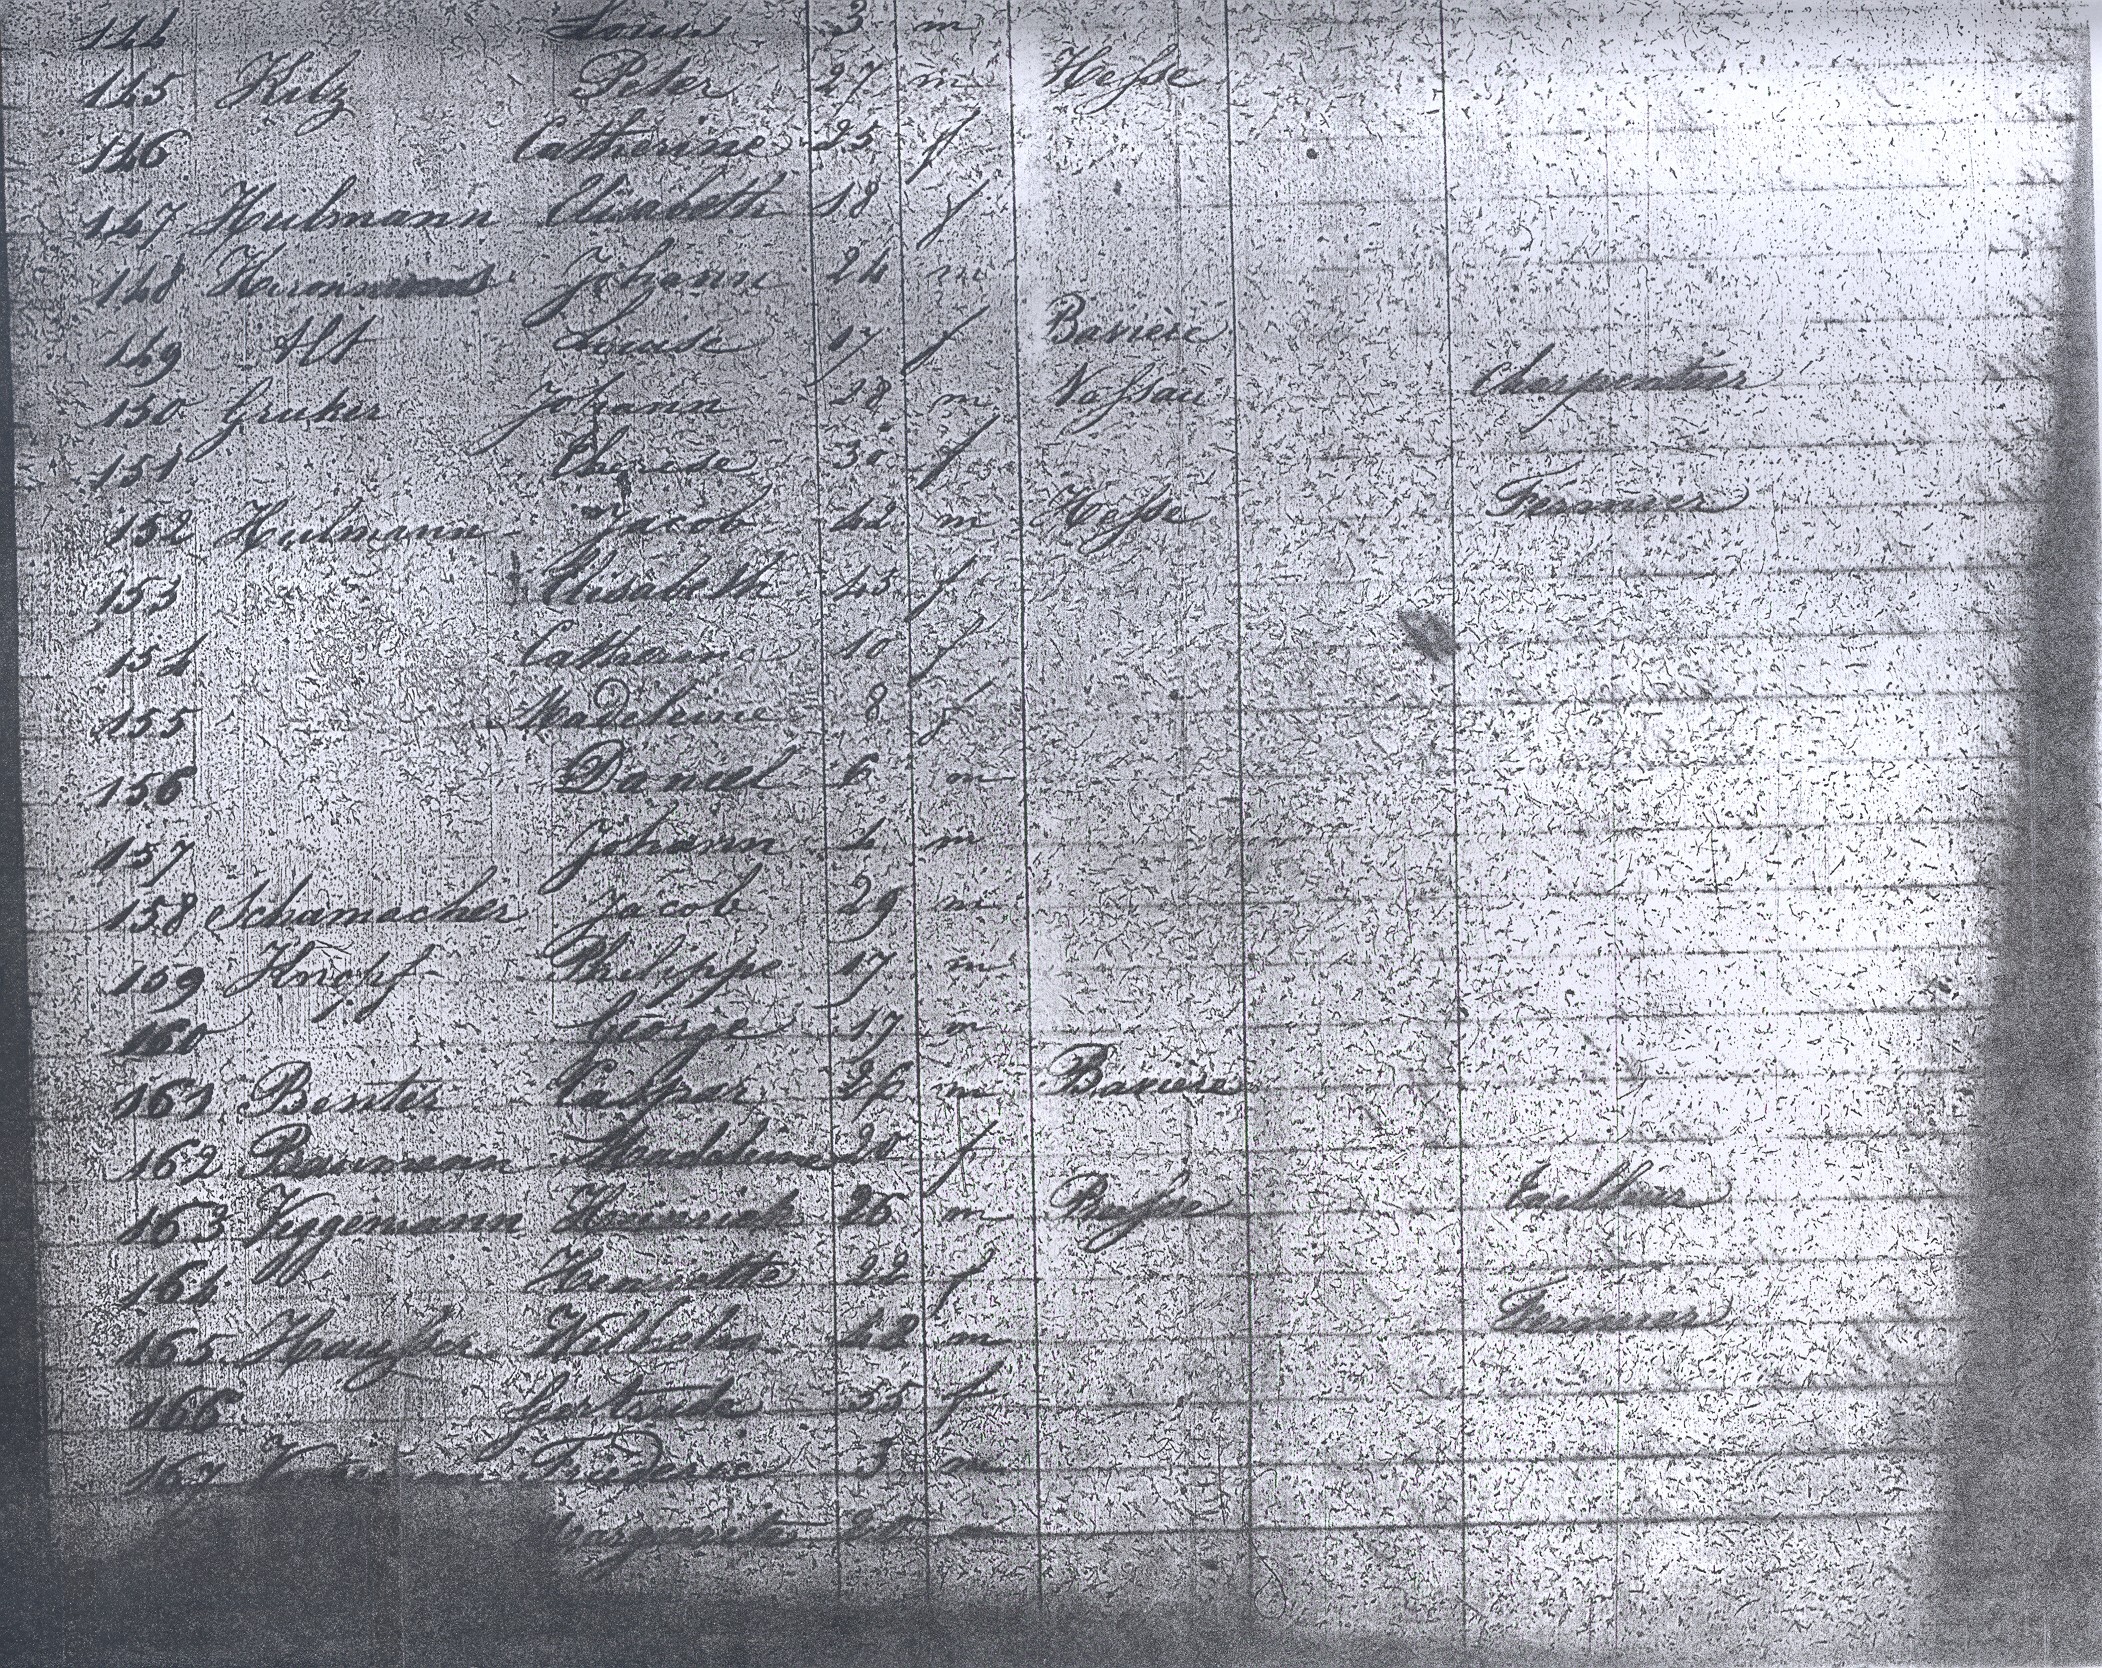 144 Louis 3 m
145 Kilz Peter 27 m Hesse
146 Catherine 25 f
147 Hulmann Elisabeth 18 f
148 Johann 24 m
149 Alt Louise 17 f Baviere
150 Gruker Johann 28 m Nassau Charpentier
151 Therese 30 f
152 Hulmann Jacob 42 m Hesse Fermier
153 Elisabeth 45 f
154 Catharine 10 f
155 Madeleine 8 f
156 Daniel 6 m
157 Johann 4 m
158 Schamacher Jacob 29 m
159 Knopf Philippe 17 m
160 George 17 m
161 Benter Caspar 26 m Baviere
162 Bauman Madeleine 20 f
163 Veggemann Heinrich 26 m Tailleur
164 Henriette 22 f
165 Wilhelm 42 m Fermier
166 Gertrude 55 f
167 3 m
Margareta 20